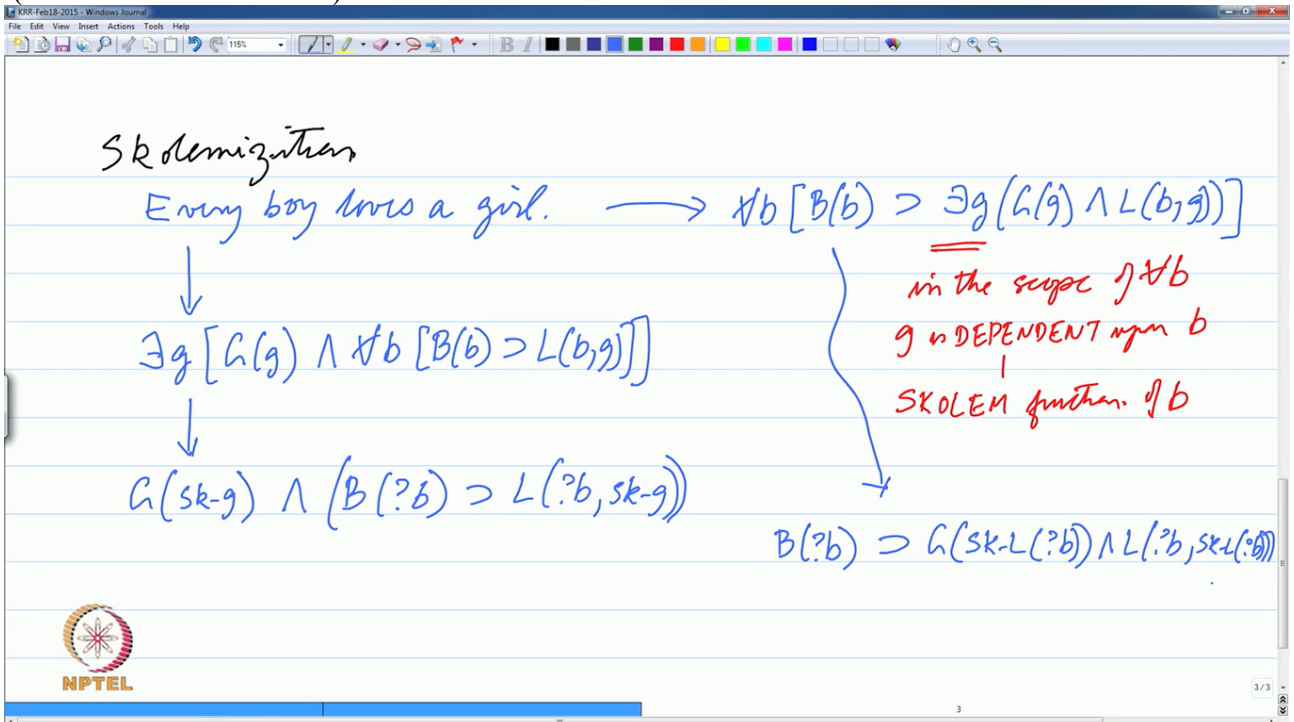 KRR-Feb18-2015 - Windows Journal
File Edit View Insert Actions Tools Help
115%
B I
Skolemization
Every boy loves a girl. → ∀b [B(b) ⊃ ∃g (G(g) ∧ L(b,g))]
in the scope of ∀b
g is DEPENDENT upon b
SKOLEM function of b
∃g [G(g) ∧ ∀b [B(b) ⊃ L(b,g)]]
G(sk-g) ∧ (B(?b) ⊃ L(?b, sk-g))
B(?b) ⊃ G(sk-L(?b)) ∧ L(?b, sk-L(?b))
NPTEL
3/3
3